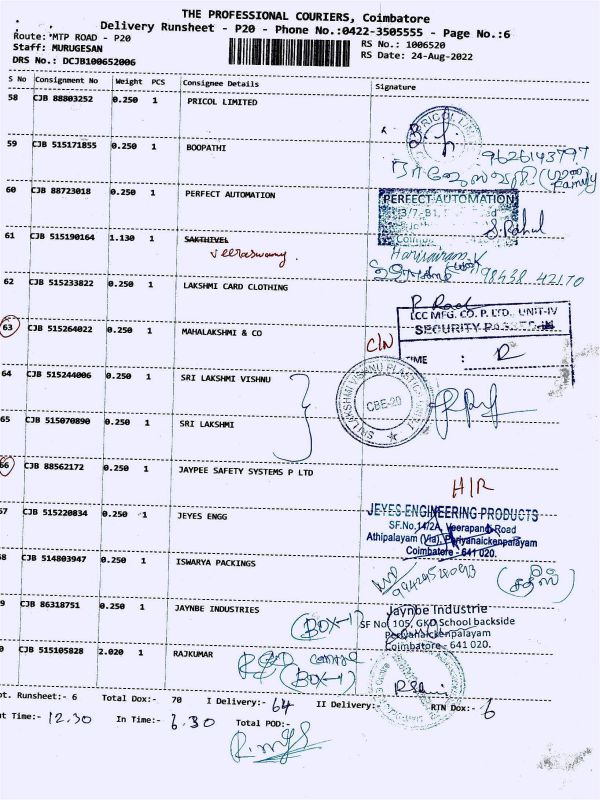 THE PROFESSIONAL COURIERS, Coimbatore
Delivery Runsheet - P20 - Phone No.:0422-3505555 - Page No.:6
Route: MTP ROAD - P20
RS No.: 1006520
Staff: MURUGESAN
RS Date: 24-Aug-2022
DRS No.: DCJB100652006
S No Consignment No Weight PCS Consignee Details Signature
58 CJB 88803252 0.250 1 PRICOL LIMITED
59 CJB 515171855 0.250 1 BOOPATHI
9626143797
Family
60 CJB 88723018 0.250 1 PERFECT AUTOMATION
PERFECT AUTOMATION
S. Rahul
61 CJB 515190164 1.130 1 SAKTHIVEL
veeraswamy
Harisairam.K
98438 42170
62 CJB 515233822 0.250 1 LAKSHMI CARD CLOTHING
LCC MFG. CO. P. LTD., UNIT-IV
SECURITY PASSED IN
TIME :
63 CJB 515264022 0.250 1 MAHALAKSHMI & CO
C/N
64 CJB 515244006 0.250 1 SRI LAKSHMI VISHNU
CBE-20
65 CJB 515070890 0.250 1 SRI LAKSHMI
66 CJB 88562172 0.250 1 JAYPEE SAFETY SYSTEMS P LTD
H/R
57 CJB 515220834 0.250 1 JEYES ENGG
JEYES ENGINEERING PRODUCTS
SF.No.14/2A, Veerapandi Road
Athipalayam (Via), Periyanaickenpalayam
Coimbatore - 641 020.
58 CJB 514803947 0.250 1 ISWARYA PACKINGS
9 CJB 86318751 0.250 1 JAYNBE INDUSTRIES
(BOX-1)
Jaynbe Industrie
SF No 105, GKD School backside
Periyanaickenpalayam
Coimbatore - 641 020.
0 CJB 515105828 2.020 1 RAJKUMAR
(BOX-1)
ot. Runsheet:- 6 Total Dox:- 70 I Delivery:- 64 II Delivery:- RTN Dox:- 6
ut Time:- 12.30 In Time:- 6.30 Total POD:-